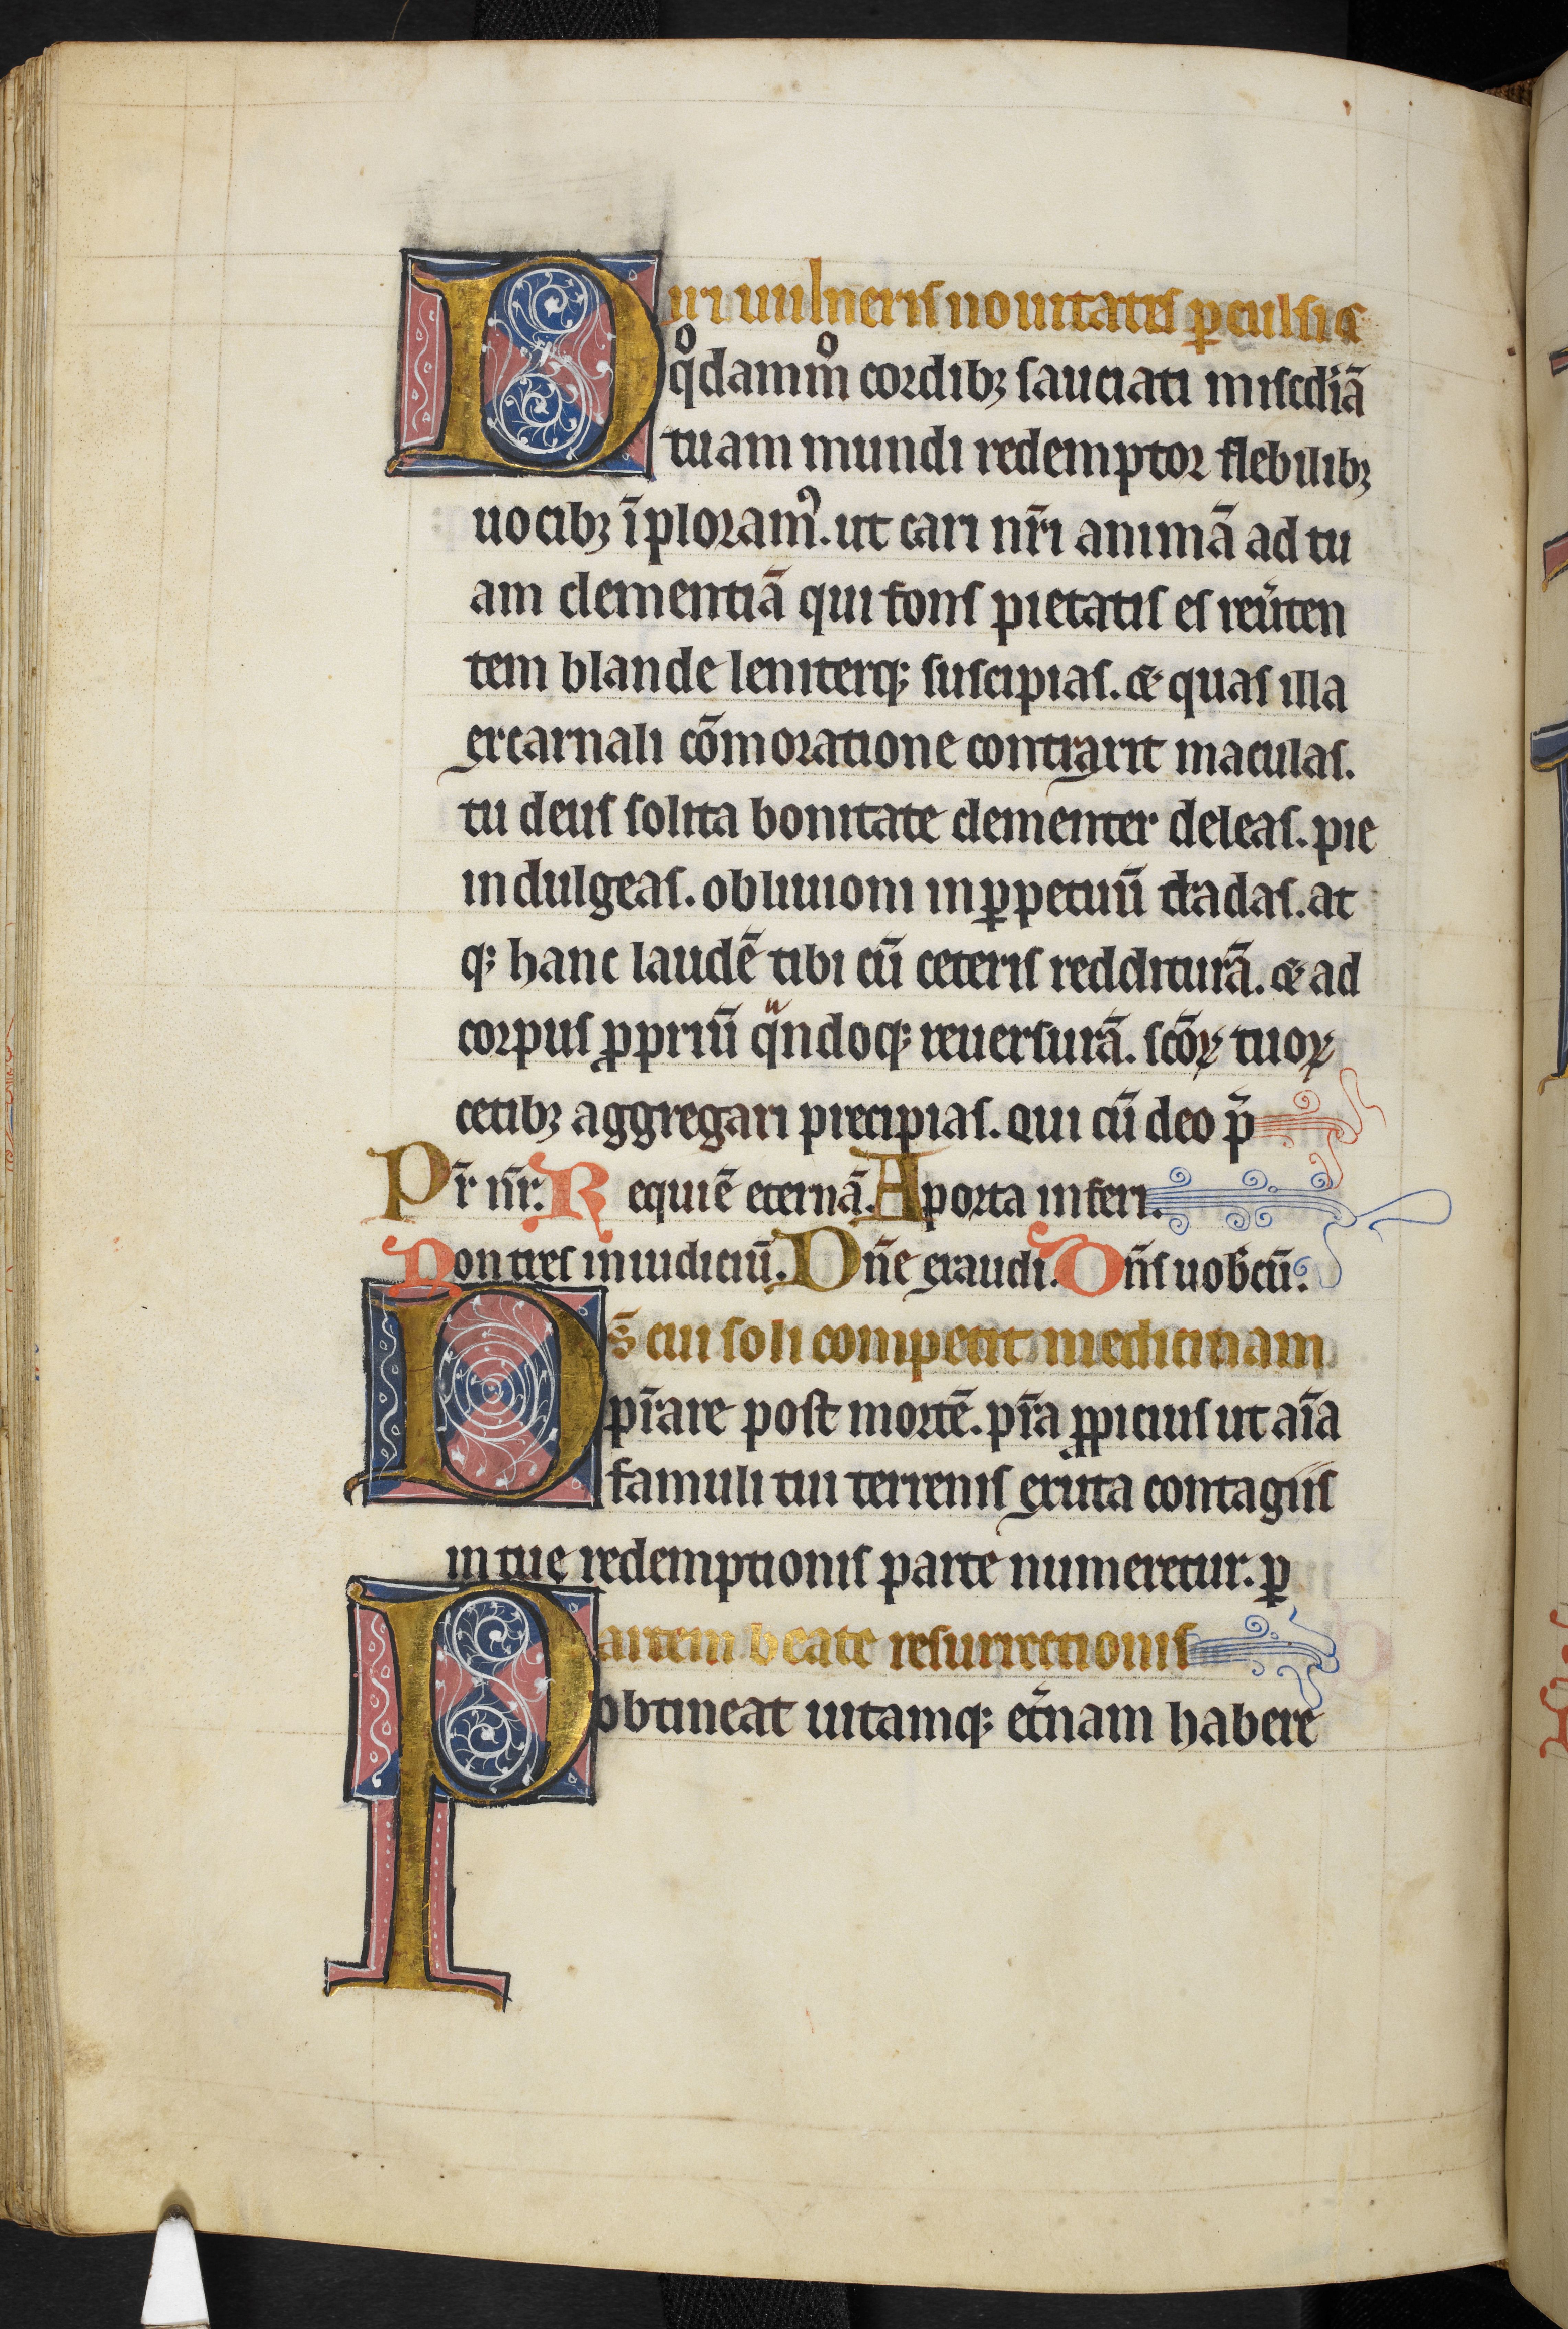 Diri uulneris nouitate p̱culsi ⁊
q̊dam̊m cordibꝫ sauciati misc̃diã
tuam mundi redemptor flebilibꝫ
uocibꝫ ĩploramꝰ. ut cari nr̃i animã ad tu
am clementiã qui fons pietatis es reu̾ten
tem blande leniterqꝫ suscipias. & quas illa
ex carnali cõmoratione contraxit maculas.
tu deus solita bonitate clementer deleas. pie
indulgeas. obliuioni in ꝑpetuũ tradas. at
qꝫ hanc laudẽ tibi cũ ceteris reddituram̃. & ad
corpus ꝓpriũ qͣndoqꝫ reuersurã. sc̃oꝝ tuoꝝ
cetibꝫ aggregari precipias. Qui cũ deo p̃
Pr̃ nr̃. Requiẽ eternã. A porta inferi.
Non tres in iudiciũ. Dñe exaudi. Dñs uob̃cũ.
Ds̃ cui soli competit medicinam
pr̃are post mortẽ. pr̃a ꝓpicius ut aĩa
famuli tui terrenis exuta contagiis
in tuę redemptionis parte numeretur. ꝑ
Partem beate resurrectionis
obtineat uitamqꝫ et̾nam habere